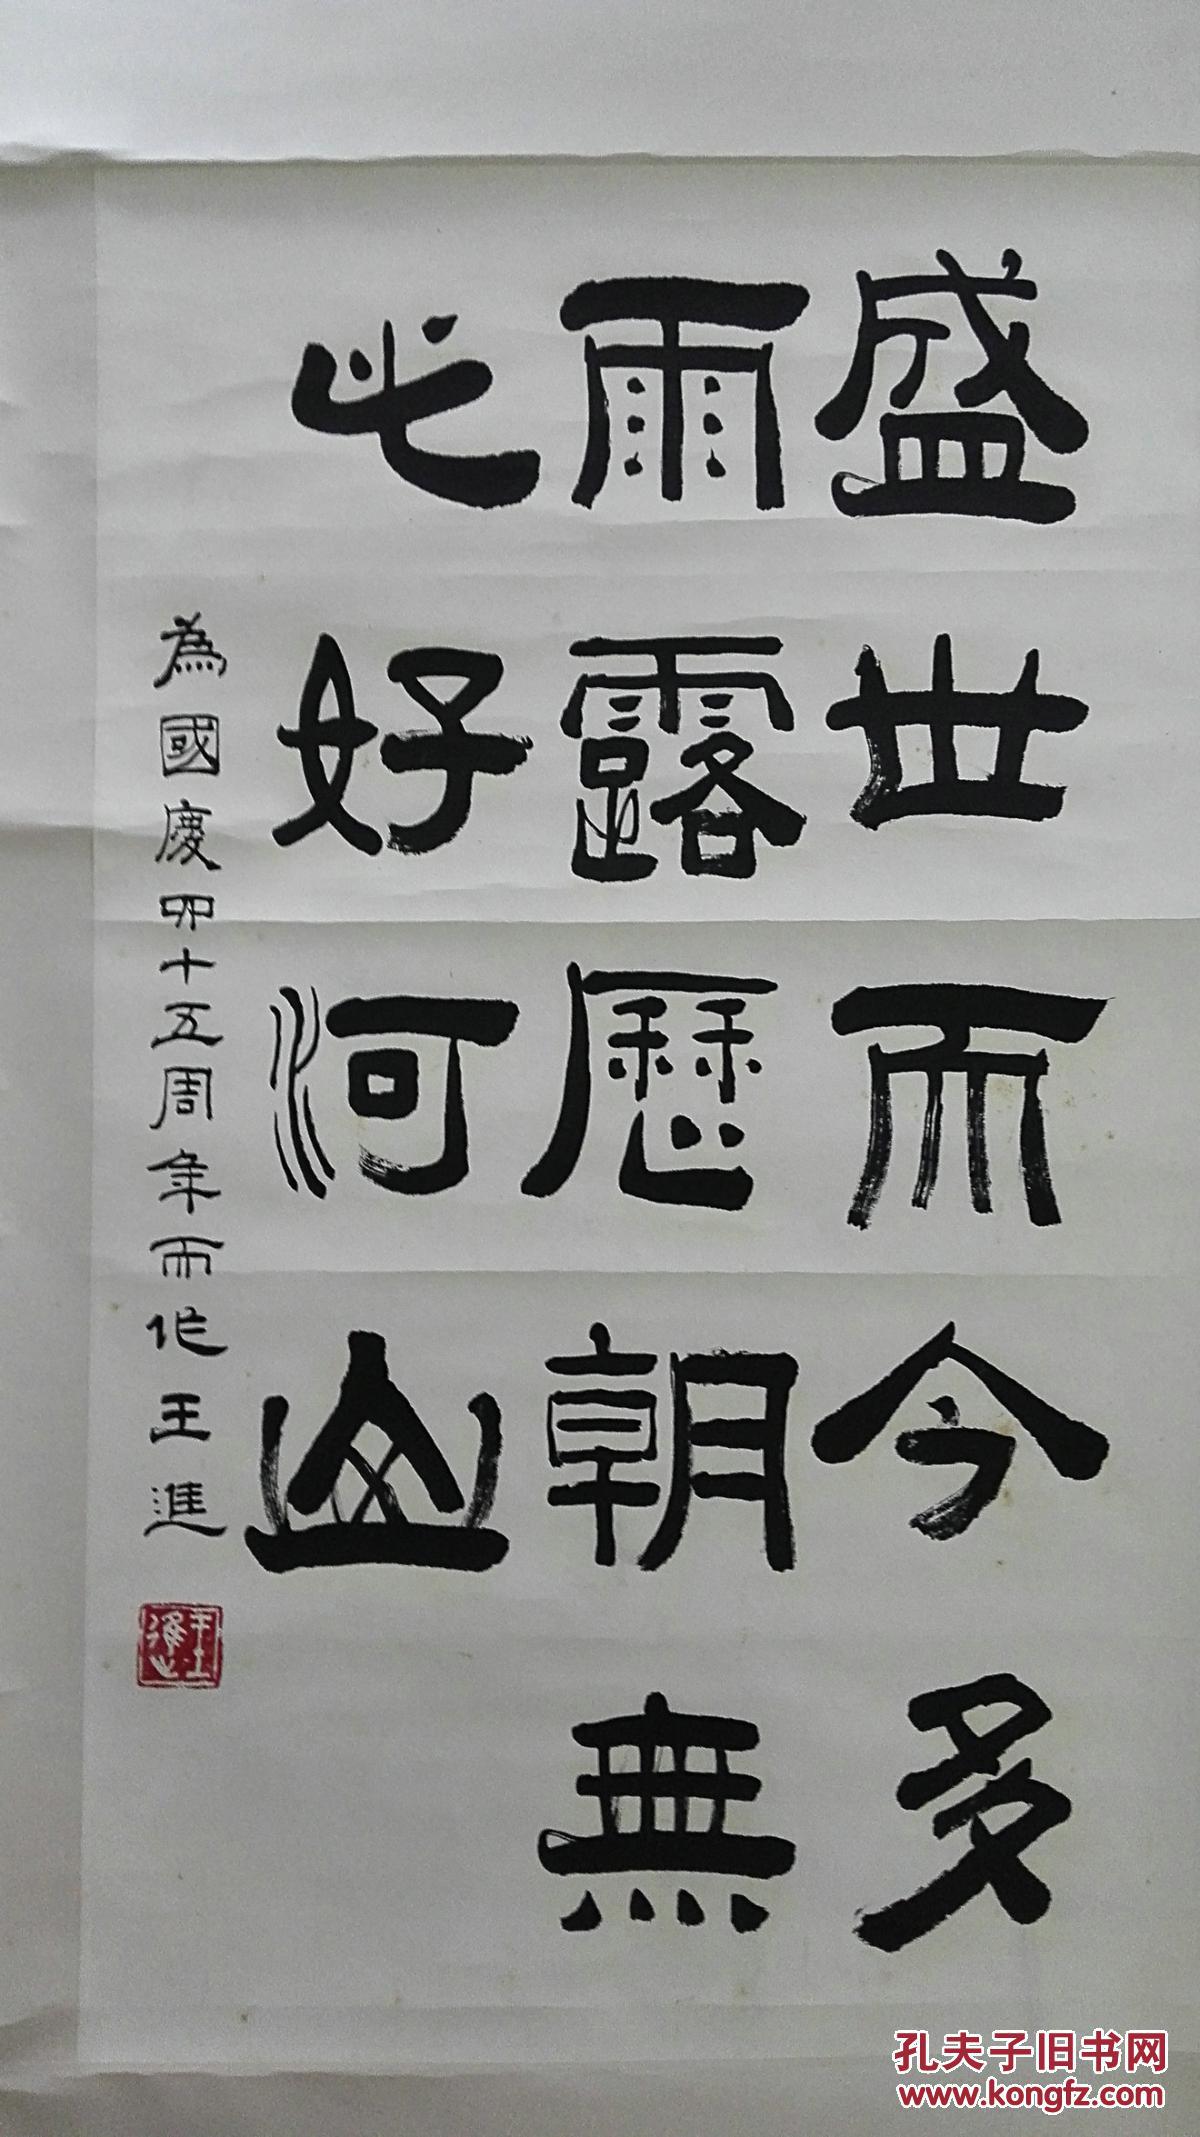 盛世而今多
雨露歷朝無
此好河山
為國慶四十五周年而作王進
孔夫子旧书网
www.kongfz.com